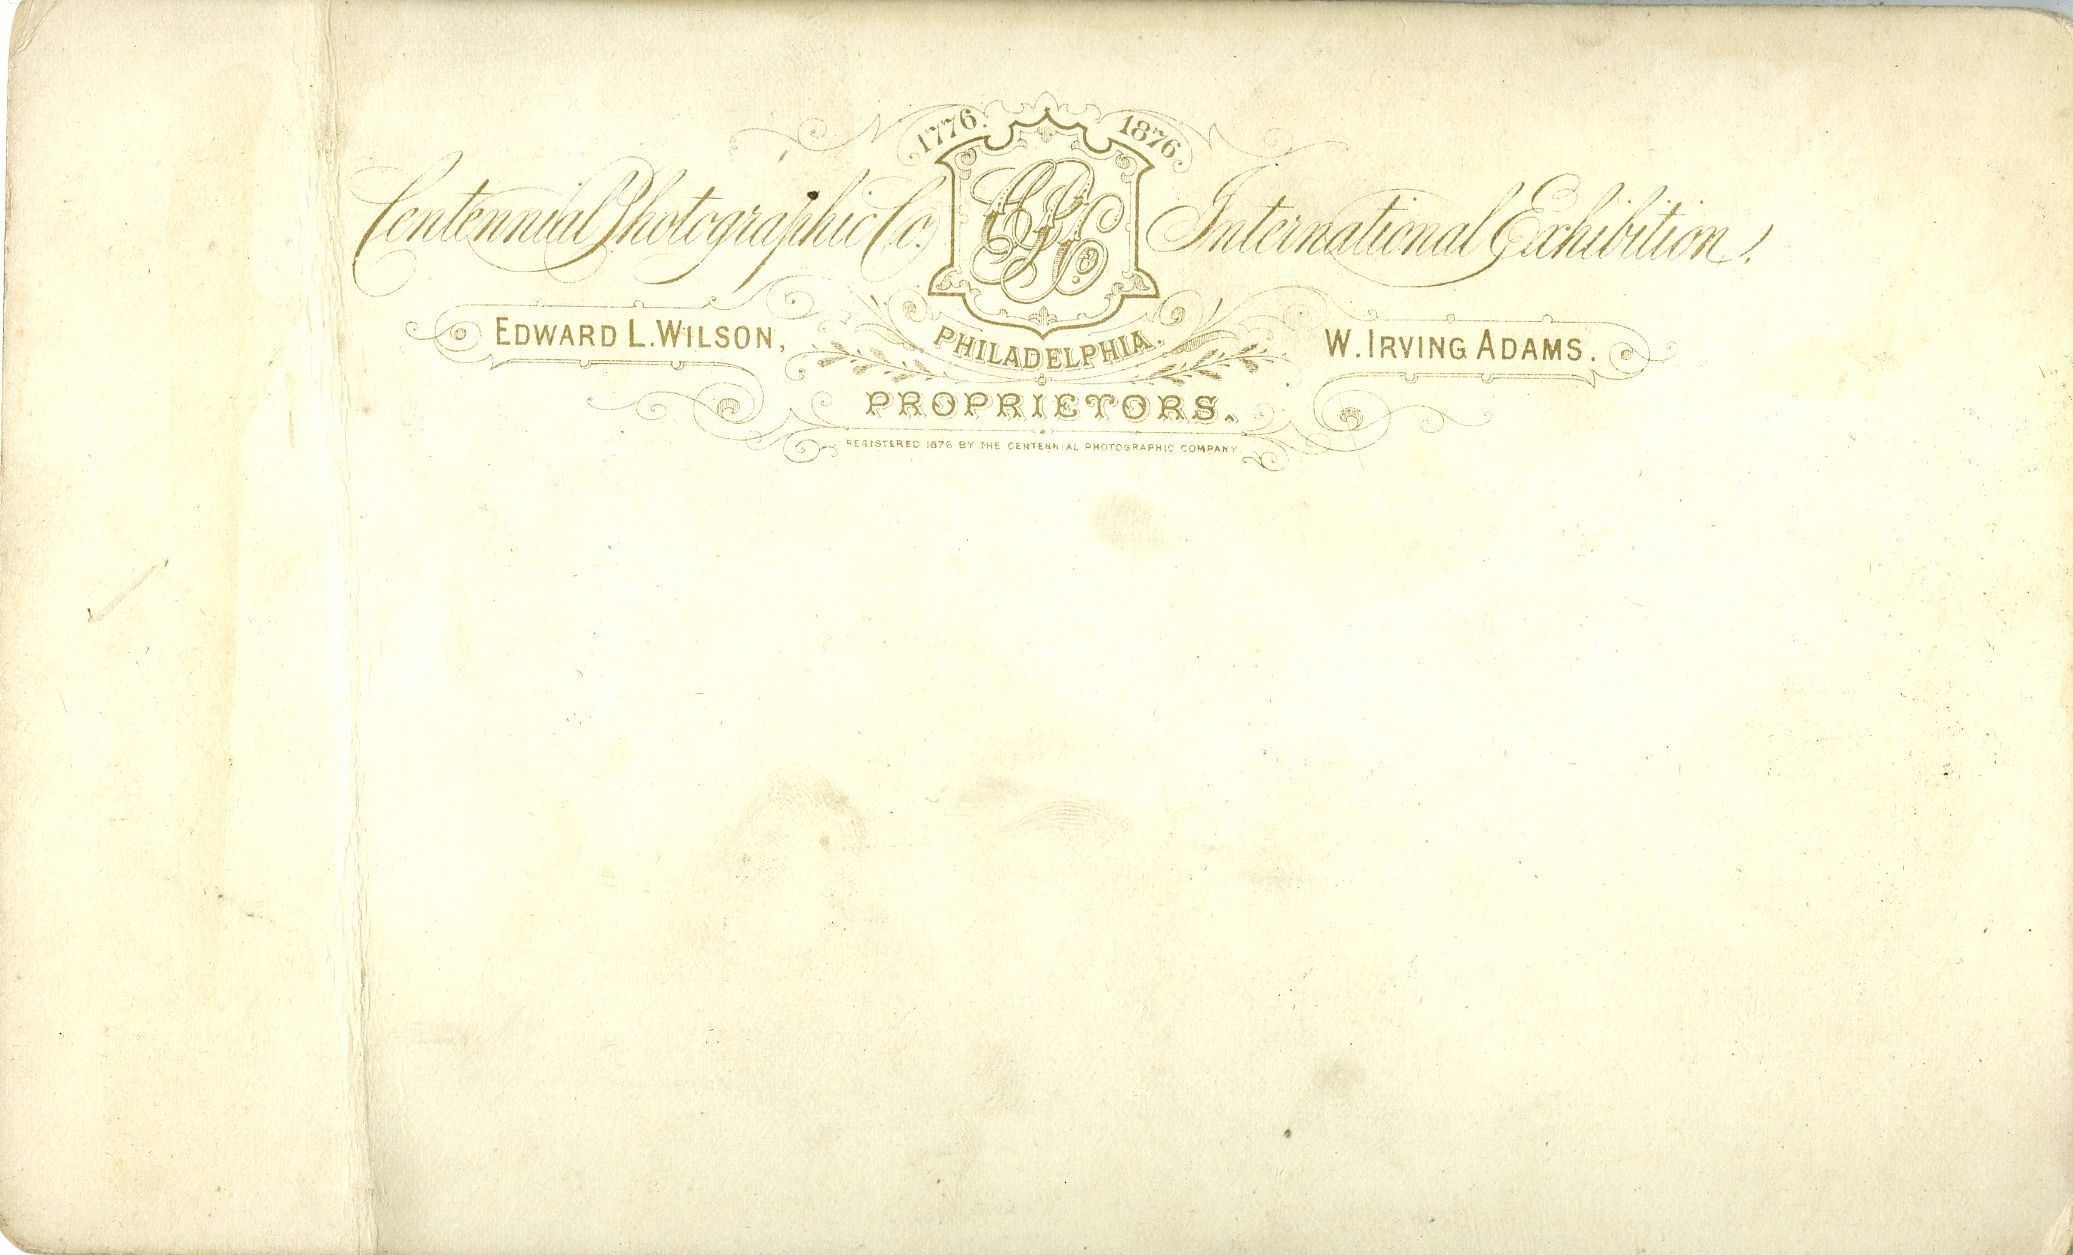 1776. 1876.
Centennial Photographic Co. CPCo. International Exhibition.
EDWARD L. WILSON, PHILADELPHIA. W. IRVING ADAMS.
PROPRIETORS.
REGISTERED 1876 BY THE CENTENNIAL PHOTOGRAPHIC COMPANY